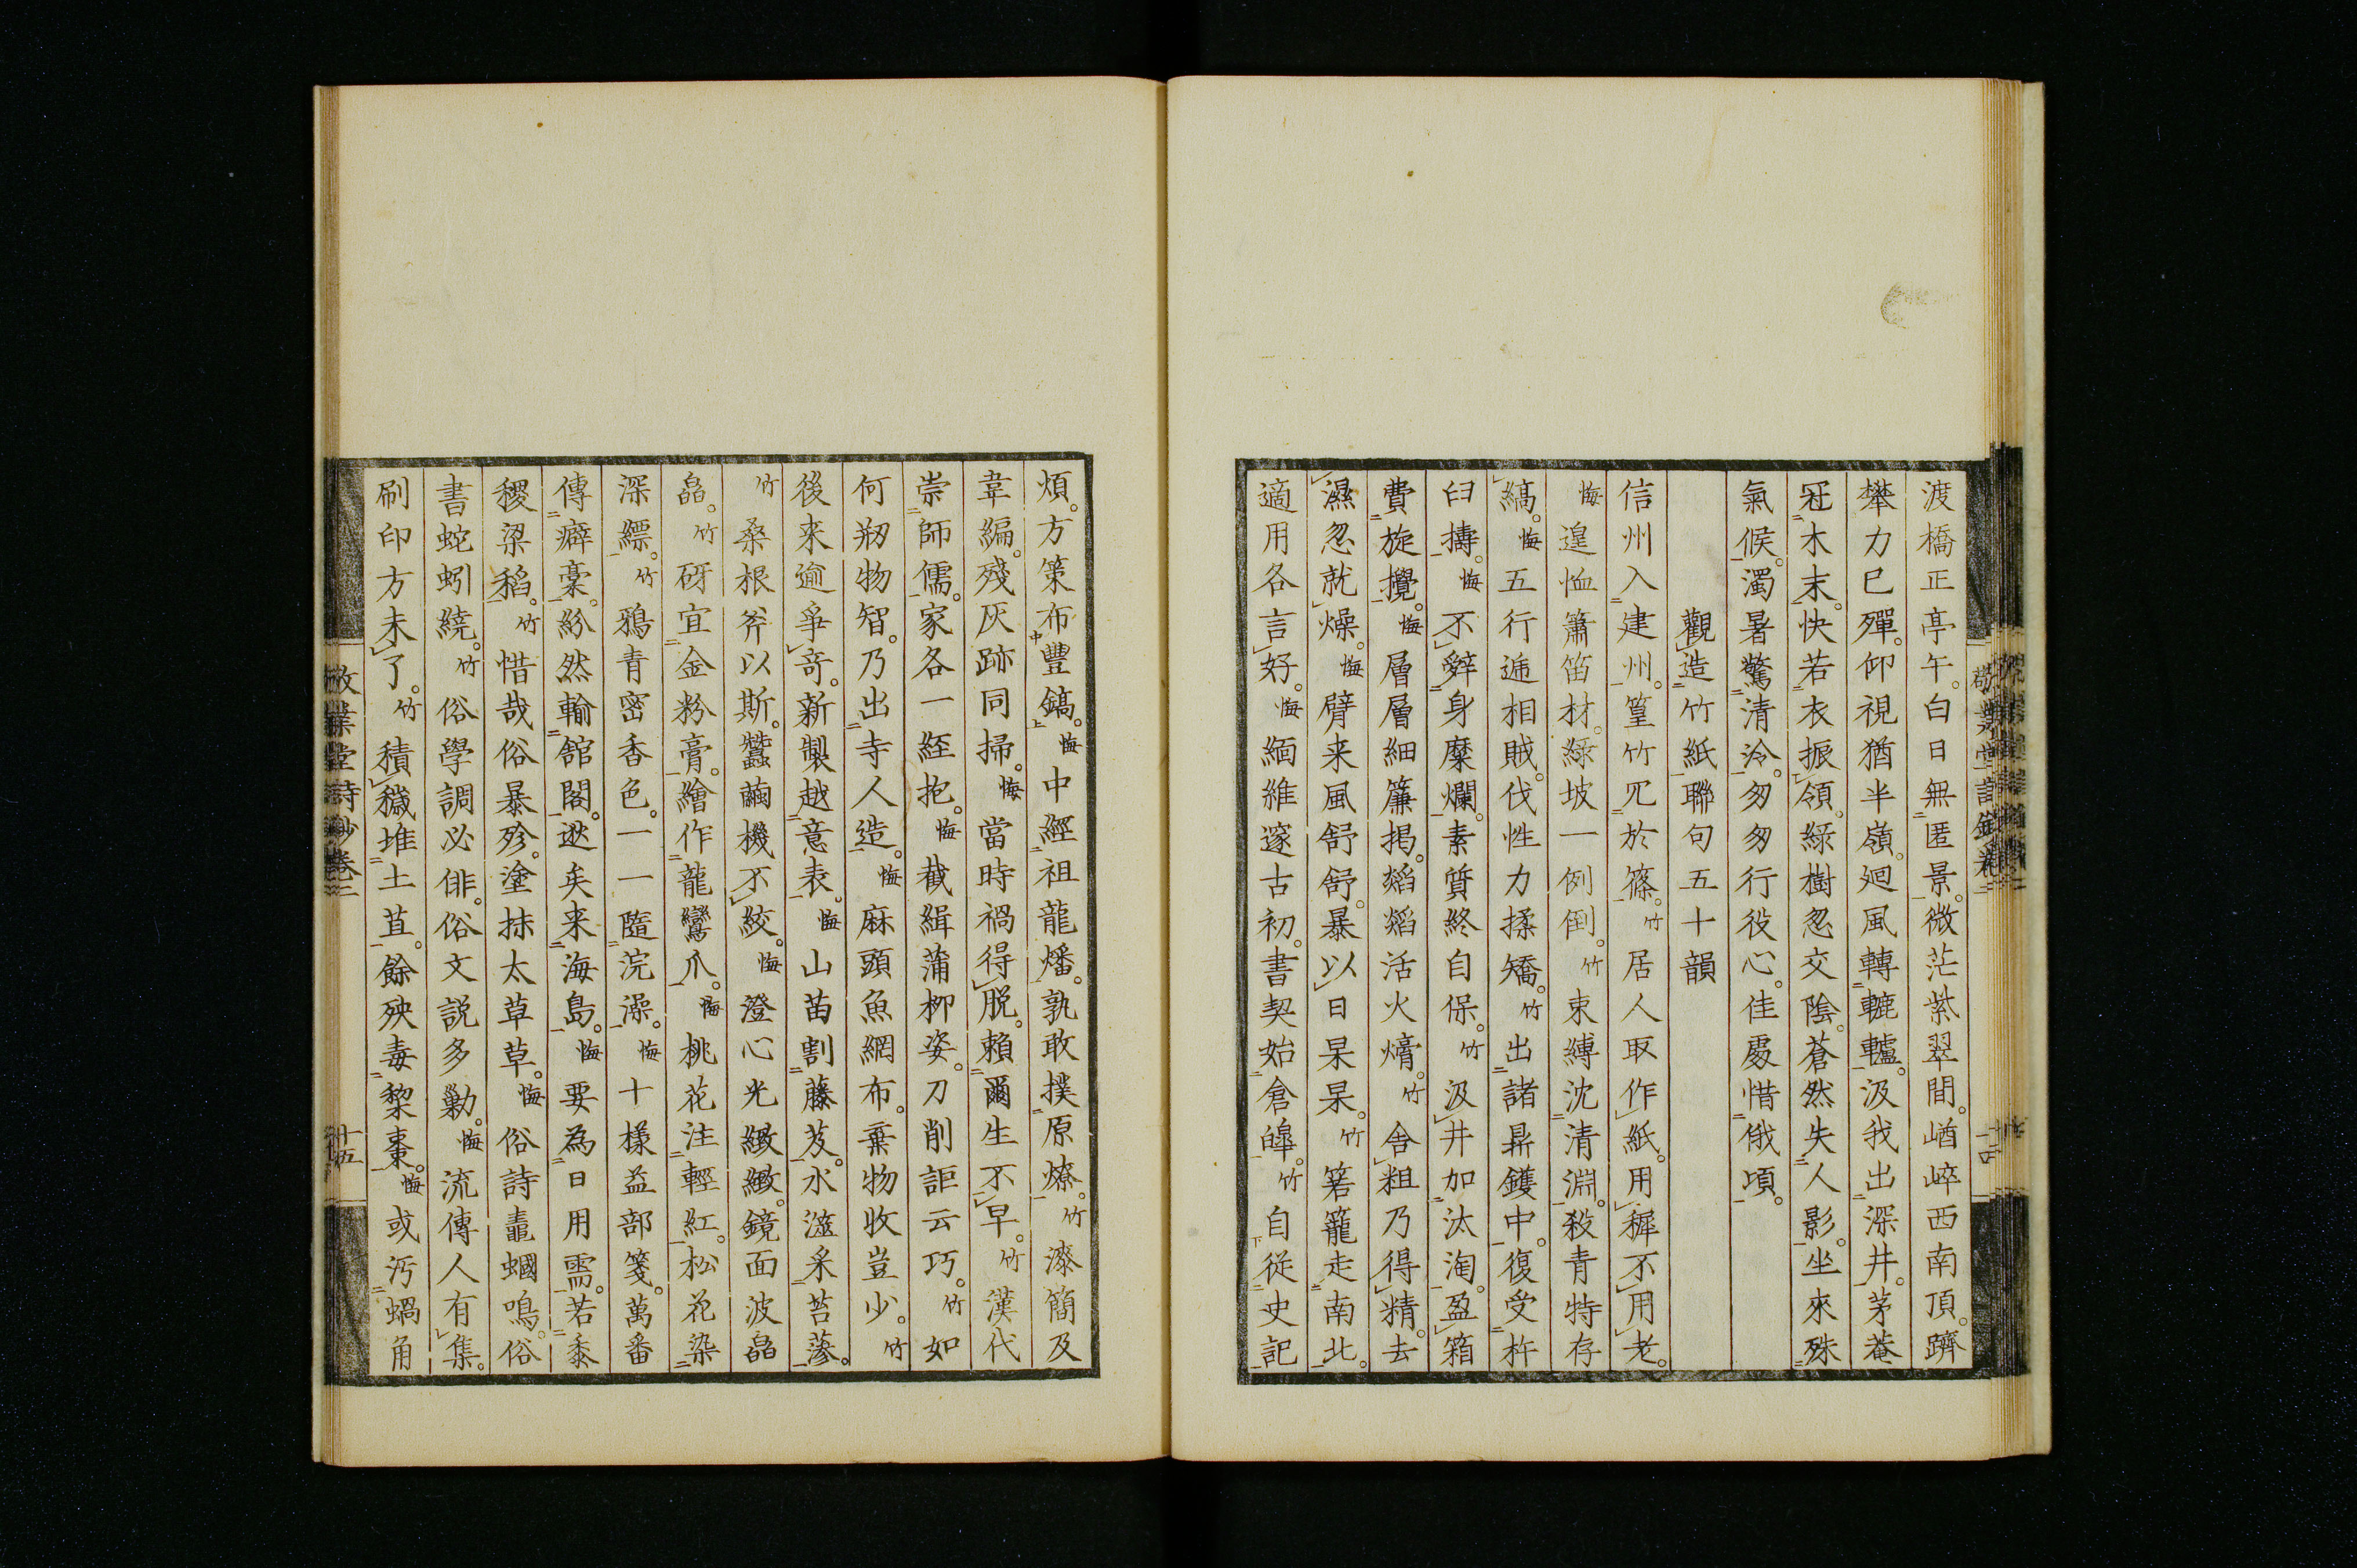 渡橋正亭午。白日無匿景。微茫紫翠間。崷崪西南頂。躋
攀力已殫。仰視猶半嶺。廻風轉轆轤。汲我出深井。茅菴
冠木末。快若衣振領。綠樹忽交陰。蒼然失人影。坐來殊
氣候。濁暑驚清泠。匆匆行役心。佳處惜俄頃。
觀造竹紙聯句五十韻
信州入建州。篁竹冗於篠。竹居人取作紙。用穉不用老。
悔遑恤簫笛材。綠坡一例倒。竹束縛沈清淵。殺青特存
縞。悔五行遞相賊。伐性力揉矯。竹出諸鼎鑊中。復受杵
臼擣。悔不辭身糜爛。素質終自保。竹汲井加汰淘。盈箱
費旋攪。悔層層細簾揭。熖熖活火熁。竹舍粗乃得精。去
濕忽就燥。悔臂来風舒舒。暴以日杲杲。竹箬籠走南北。
適用各言好。悔緬維邃古初。書契始倉皞。竹自從史記
煩。方策布豐鎬。悔中經祖龍燔。孰敢撲原燎。竹漆簡及
韋編。殘灰跡同掃。悔當時禍得脱。賴爾生不早。竹漢代
崇師儒。家各一經抱。悔截緝蒲柳姿。刀削詎云巧。竹如
何剏物智。乃出寺人造。悔麻頭魚網布。棄物收豈少。竹
後來逾爭奇。新製越意表。悔山苗割藤芨。水澨采苔蔘。
竹桑根斧以斯。蠶繭機不絞。悔澄心光緻緻。鏡面波皛
皛。竹砑宜金粉膏。繪作龍鸞爪。悔桃花注輕紅。松花染
深縹。竹鴉青密香色。一一隨浣澡。悔十樣益部箋。萬番
傳癖藁。紛然輸館閣。逖矣来海島。悔要為日用需。若黍
稷梁稻。竹惜哉俗暴殄。塗抹太草草。悔俗詩鼃蟈鳴。俗
書蛇蚓繞。竹俗學調必俳。俗文説多勦。悔流傳人有集。
刷印方未了。竹積穢堆土苴。餘殃毒棃棗。悔或汚蝸角
敬業堂詩鈔卷二
十四
敬業堂詩鈔卷二
十五